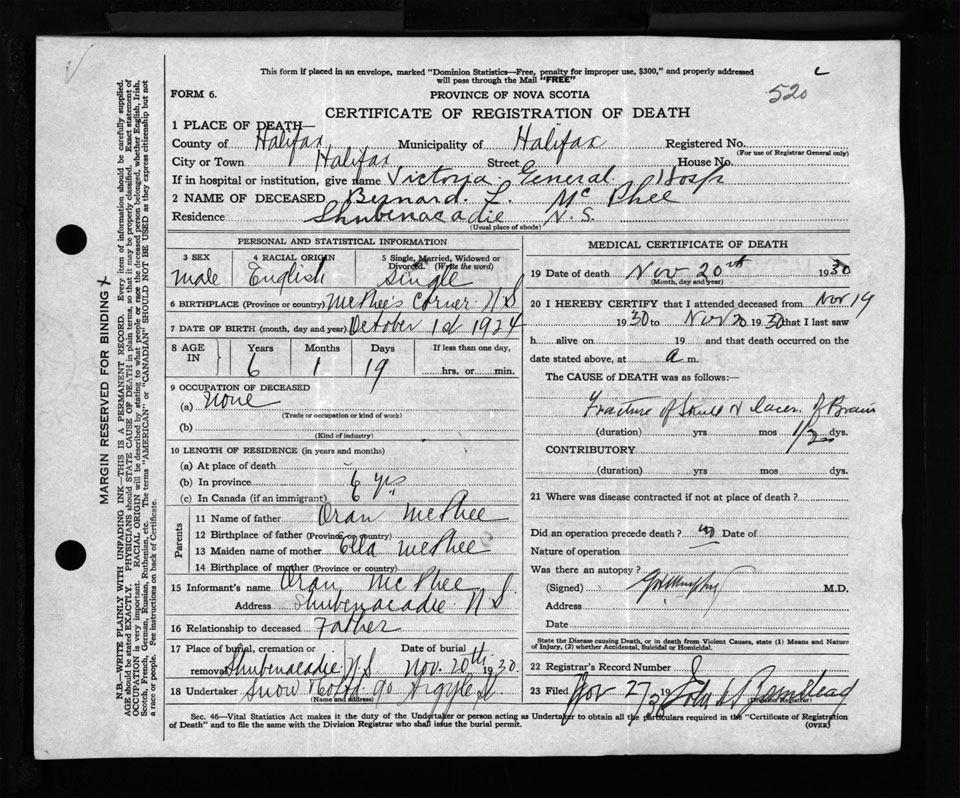 This form if placed in an envelope, marked "Dominion Statistics—Free, penalty for improper use, $300," and properly addressed
will pass through the Mail "FREE"
520
FORM 6.
PROVINCE OF NOVA SCOTIA
CERTIFICATE OF REGISTRATION OF DEATH
1 PLACE OF DEATH—
County of Halifax Municipality of Halifax Registered No.
(For use of Registrar General only)
City or Town Halifax Street House No.
If in hospital or institution, give name Victoria General Hosp
2 NAME OF DECEASED Bernard L. McPhee
Residence Shubenacadie N.S.
(Usual place of abode)
PERSONAL AND STATISTICAL INFORMATION
3 SEX 4 RACIAL ORIGIN 5 Single, Married, Widowed or
Divorced. (Write the word)
male English Single
6 BIRTHPLACE (Province or country) McPhee's Corner N S
7 DATE OF BIRTH (month, day and year) October 1st 1924
8 AGE IN Years Months Days If less than one day,
6 1 19 hrs. or min.
9 OCCUPATION OF DECEASED
(a) None
(Trade or occupation or kind of work)
(b)
(Kind of industry)
10 LENGTH OF RESIDENCE (in years and months)
(a) At place of death
(b) In province 6 yrs
(c) In Canada (if an immigrant)
Parents
11 Name of father Oran McPhee
12 Birthplace of father (Province or country)
13 Maiden name of mother Ella McPhee
14 Birthplace of mother (Province or country)
15 Informant's name Oran McPhee
Address Shubenacadie N S
16 Relationship to deceased Father
17 Place of burial, cremation or Date of burial
removal Shubenacadie N S Nov. 20th 1930
18 Undertaker Snow 90 Argyle St
(Name and address)
MEDICAL CERTIFICATE OF DEATH
19 Date of death Nov 20th 1930
(Month, day and year)
20 I HEREBY CERTIFY that I attended deceased from Nov 19
1930 to Nov 20 1930 that I last saw
h alive on 19 and that death occurred on the
date stated above, at a m.
The CAUSE of DEATH was as follows:—
Fracture of Skull & lacer. of Brain
(duration) yrs mos 1/2 dys.
CONTRIBUTORY
(duration) yrs mos dys.
21 Where was disease contracted if not at place of death?
Did an operation precede death? Date of
Nature of operation
Was there an autopsy?
(Signed) Murphy M.D.
Address
Date
State the Disease causing Death, or in death from Violent Causes, state (1) Means and Nature
of Injury, (2) whether Accidental, Suicidal or Homicidal.
22 Registrar's Record Number
23 Filed Nov 27 19
(Division Registrar)
Sec. 46—Vital Statistics Act makes it the duty of the Undertaker or person acting as Undertaker to obtain all the particulars required in the "Certificate of Registration
of Death" and to file the same with the Division Registrar who shall issue the burial permit.
(OVER)
MARGIN RESERVED FOR BINDING
N.B.—WRITE PLAINLY WITH UNFADING INK—THIS IS A PERMANENT RECORD. Every item of information should be carefully supplied.
AGE should be stated EXACTLY. PHYSICIANS should STATE CAUSE OF DEATH in plain terms, so that it may be properly classified. Exact statement of
OCCUPATION is very important. RACIAL ORIGIN will be described by stating to what people or race the deceased person belonged, whether English, Irish,
Scotch, French, German, Russian, Ruthenian, etc. The terms "AMERICAN" or "CANADIAN" SHOULD NOT BE USED as they express citizenship but not
a race or people. See instructions on back of Certificate.